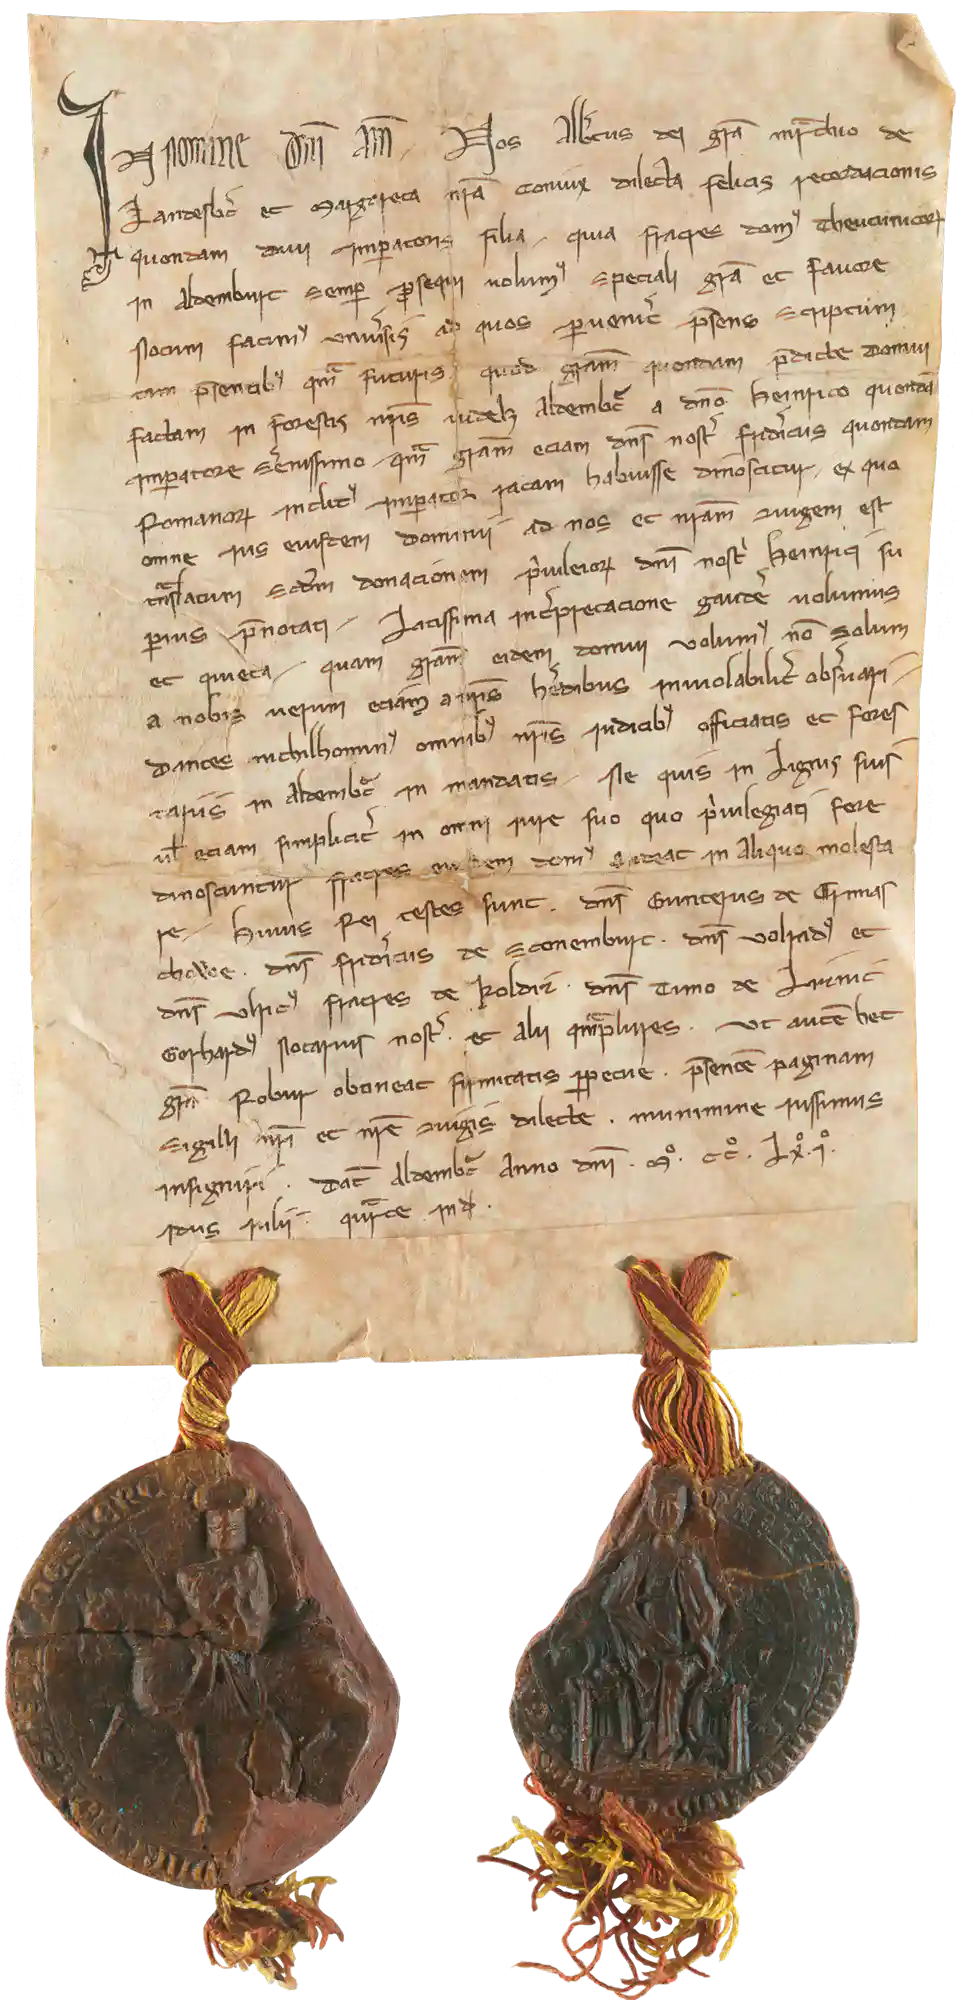 In nomine dn̄i am̄. Nos Alb̄tus dei gr̄a mr̄chio de
Landesb̄c et Margareta nr̄a coniux dilecta felicis recordacionis
quondam diui imp̄atoris filia, quia fratres domꝰ Theutunicorꝝ
in Aldemburc semp̄ p̄sequi uolumꝰ speciali gr̄a et fauore
Notum facimꝰ vniu̓sis ad quos p̄uenit̓ p̄sens scriptum
tam p̄sentibꝰ qm̄ futuris, quod gr̄am quondam p̄dicte domui
factam in forestis nr̄is uidelꝫ Aldemb̓c a dn̄o Heinrico quondā
imp̄atore s̓enissimo, qm̄ gr̄am eciam dn̄s nost̓ frid̓icus quondam
Romanorꝝ inclitꝰ imp̄ator ratam habuisse dinoscitur, ex quo
omne ius eiusdem dominii ad nos et nr̄am uirgem est
tn̄slatum scd̄m donacionem p̓uileiorꝝ dn̄i nost̓ Heinrici su
perius p̄notati, Latissima int̓pretacione gaud̓e uolumus
et quieta, quam gr̄am eidem domui volumꝰ nō solum
a nobis uerum eciam a nr̄is h̓edibus inuiolabilit̓ obs̓uari,
Dantes nichilhominꝰ omnibꝰ nr̄is iudicibꝰ officiatis et fores
tariis in Aldemb̓c in mandatis, Ne quis in lignis suis
ul̄ eciam simplicit̓ in omni iure suo quo p̓uilegiati fore
dinoscuntur fratres eiusdem domꝰ audeat in aliquo molesta
re, Huius rei testes sunt. dn̄s Gunterus de Crimas
chowe. dn̄s frid̓icus de Sconemburc. dn̄s Volradꝰ et
dn̄s Vlricꝰ fratres de Koldiz. dn̄s Timo de Lizinic
Gerhardꝰ Notarius nost̓. et alii qm̄plures. Vt autē hec
gr̄a Robur obtineat firmitatis p̄petue. p̄sentē paginam
Sigilli nr̄i et nr̄e uirgis dilecte. munimine iussimus
insigniri. Dat̄ Aldemb̓c Anno dn̄i. mͦ. ccͦ. lxͦ. iͦ.
idus iulii. quarte ind̄.